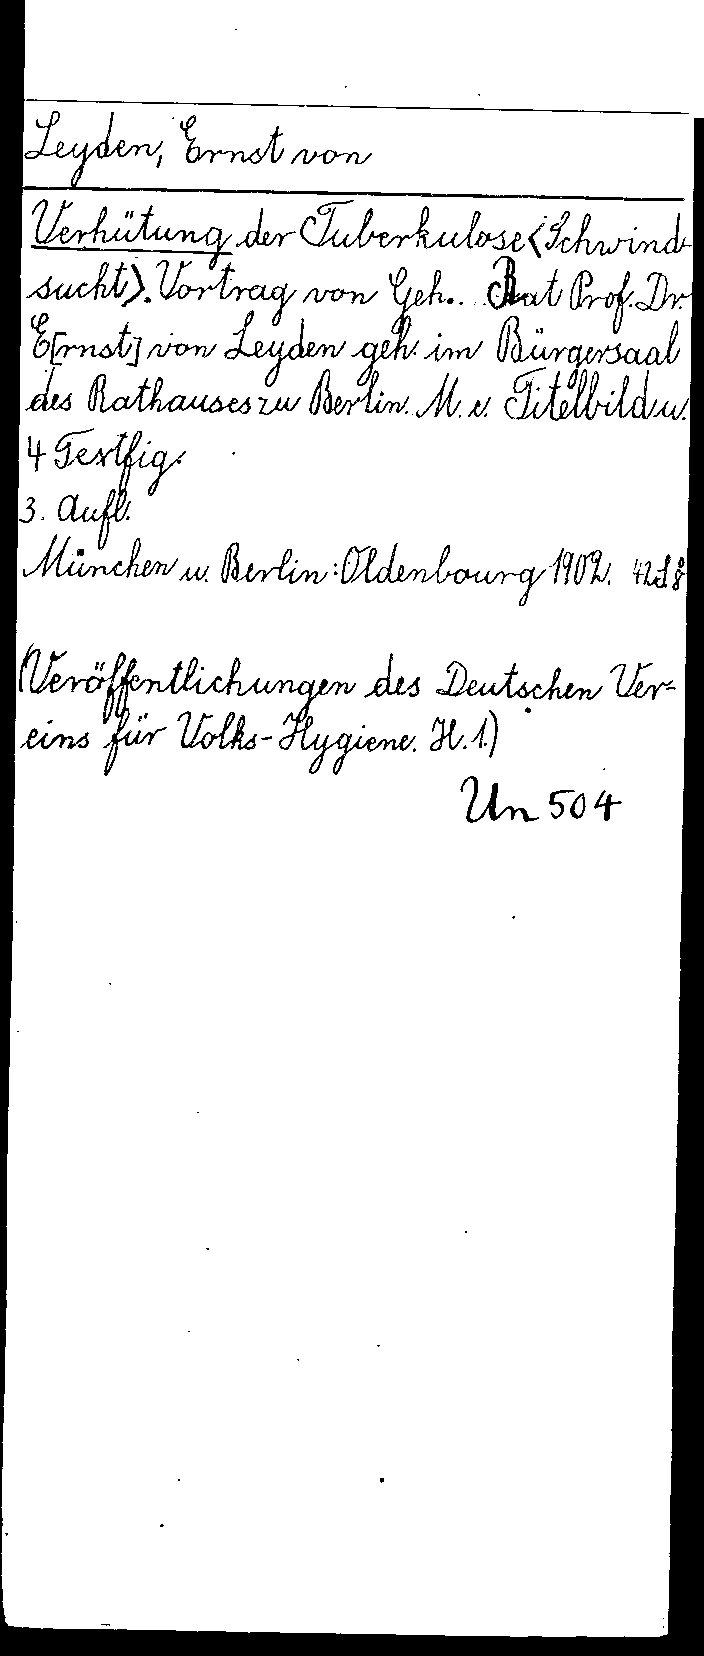 Leyden, Ernst von
Verhütung der Tuberkulose <Schwind-
sucht>. Vortrag von Geh.. Rat Prof. Dr.
E[rnst] von Leyden geh. im Bürgersaal
des Rathauses zu Berlin. M. e. Titelbild u.
4 Textfig.
3. Aufl.
München u. Berlin: Oldenbourg 1902. 42 S. 8
(Veröffentlichungen des Deutschen Ver-
eins für Volks-Hygiene. H. 1.)
Un 504